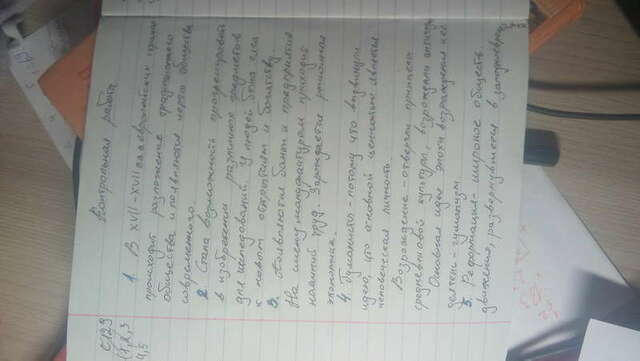 Контрольная работа
с 129
(1,2,3
4,5
1. В XVII-XVII вв. в европейских странах
происходит разложение традиционного
общества и появляются черты общества
современного.
2. Стала возможность прогрессировать
в изобретении различных предметов
для исследований. У людей была
к новым открытиям и богатству.
3. Появляются банки и предприятия
На смену мануфактурам приходит
наёмный труд. Зарождается рыночная
экономика.
4. Гуманисты - потому что выдвинули
идею, что основной ценностью является
человеческая личность.
Возрождение - отвергли принципы
средневековой культуры, возрождали
Основная идея эпохи возрождения и её
деятели - гуманизм.
5. Реформация - широкое обществ.
движение, развернувшееся в